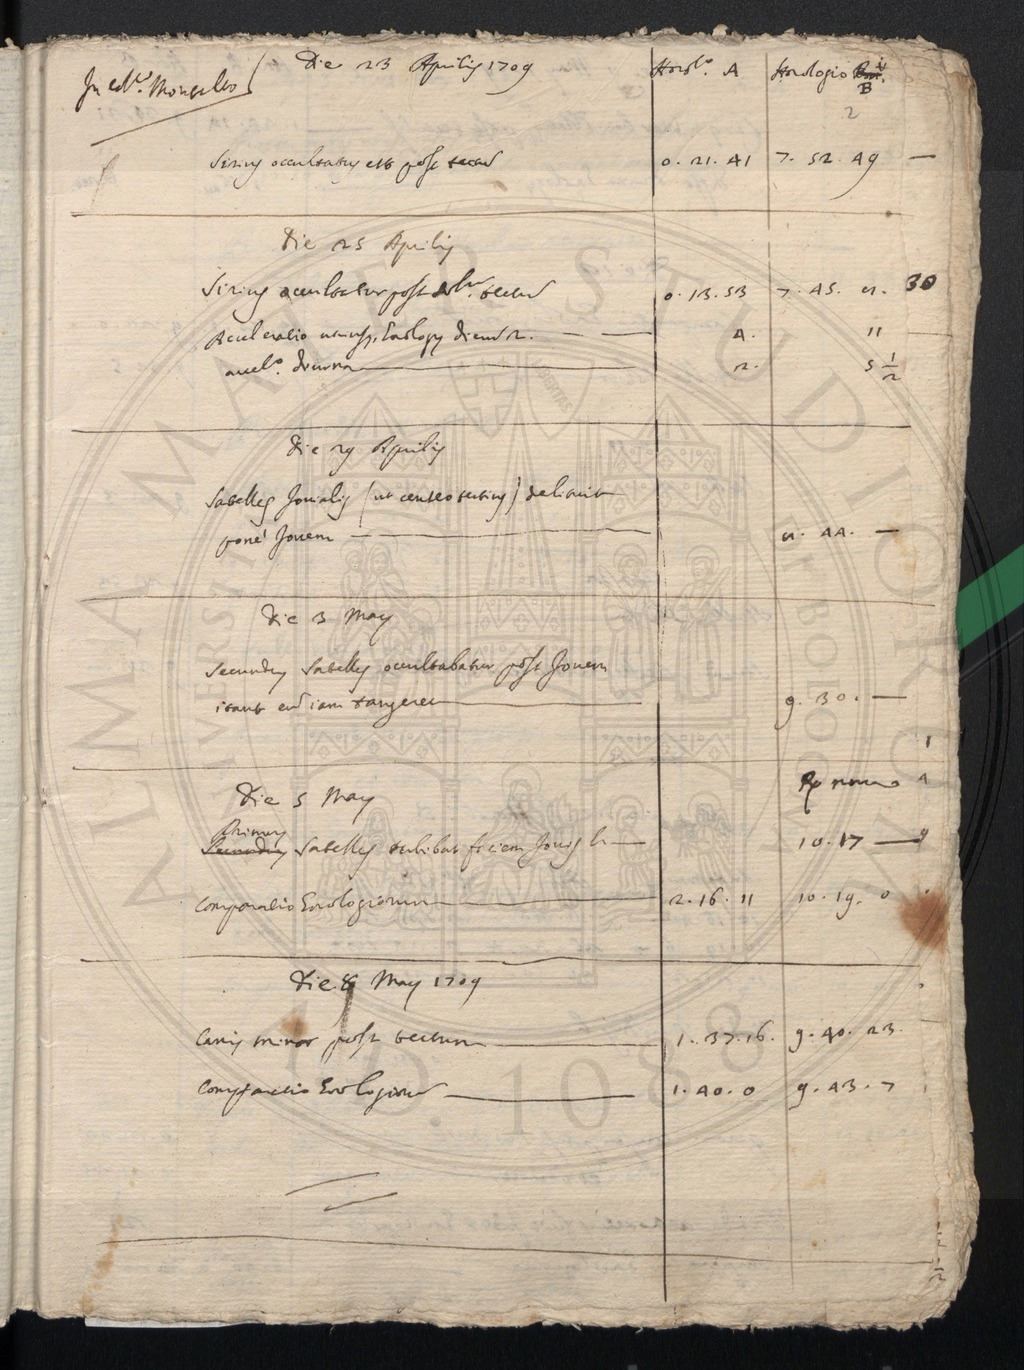 In Obs. Monsaltio
Die 23 Aprilis 1709 Horol.o A Horologio B
2
Sirius occultatus est post tectum 0. 21. 41 7. 52. 49 —
Die 25 Aprilis
Sirius occultatur post tectum 0. 13. 53 7. 45. 30
Acceleratio Horologij dierum 2. 4. 11
accel.o diurna 2. 5 1/2
Die 29 Aprilis
Satelles Jovialis (ut censeo tertius) delituit
pone Jovem 44. —
Die 3 May
Secundus Satelles occultabatur post Jovem
itaut eum iam tangeret 9. 30. —
1
Die 5 May
Primus
Secundus Satelles subibat faciem Jovis 10. 17 —
Comparatio Horologiorum 2. 16. 11 10. 19. 0
Die 8 May 1709
Canis minor post tectum 1. 37. 16. 9. 40. 23
Comparatio Horologiorum 1. 40. 0 9. 43. 7
ALMA MATER STUDIORUM
A.D. 1088